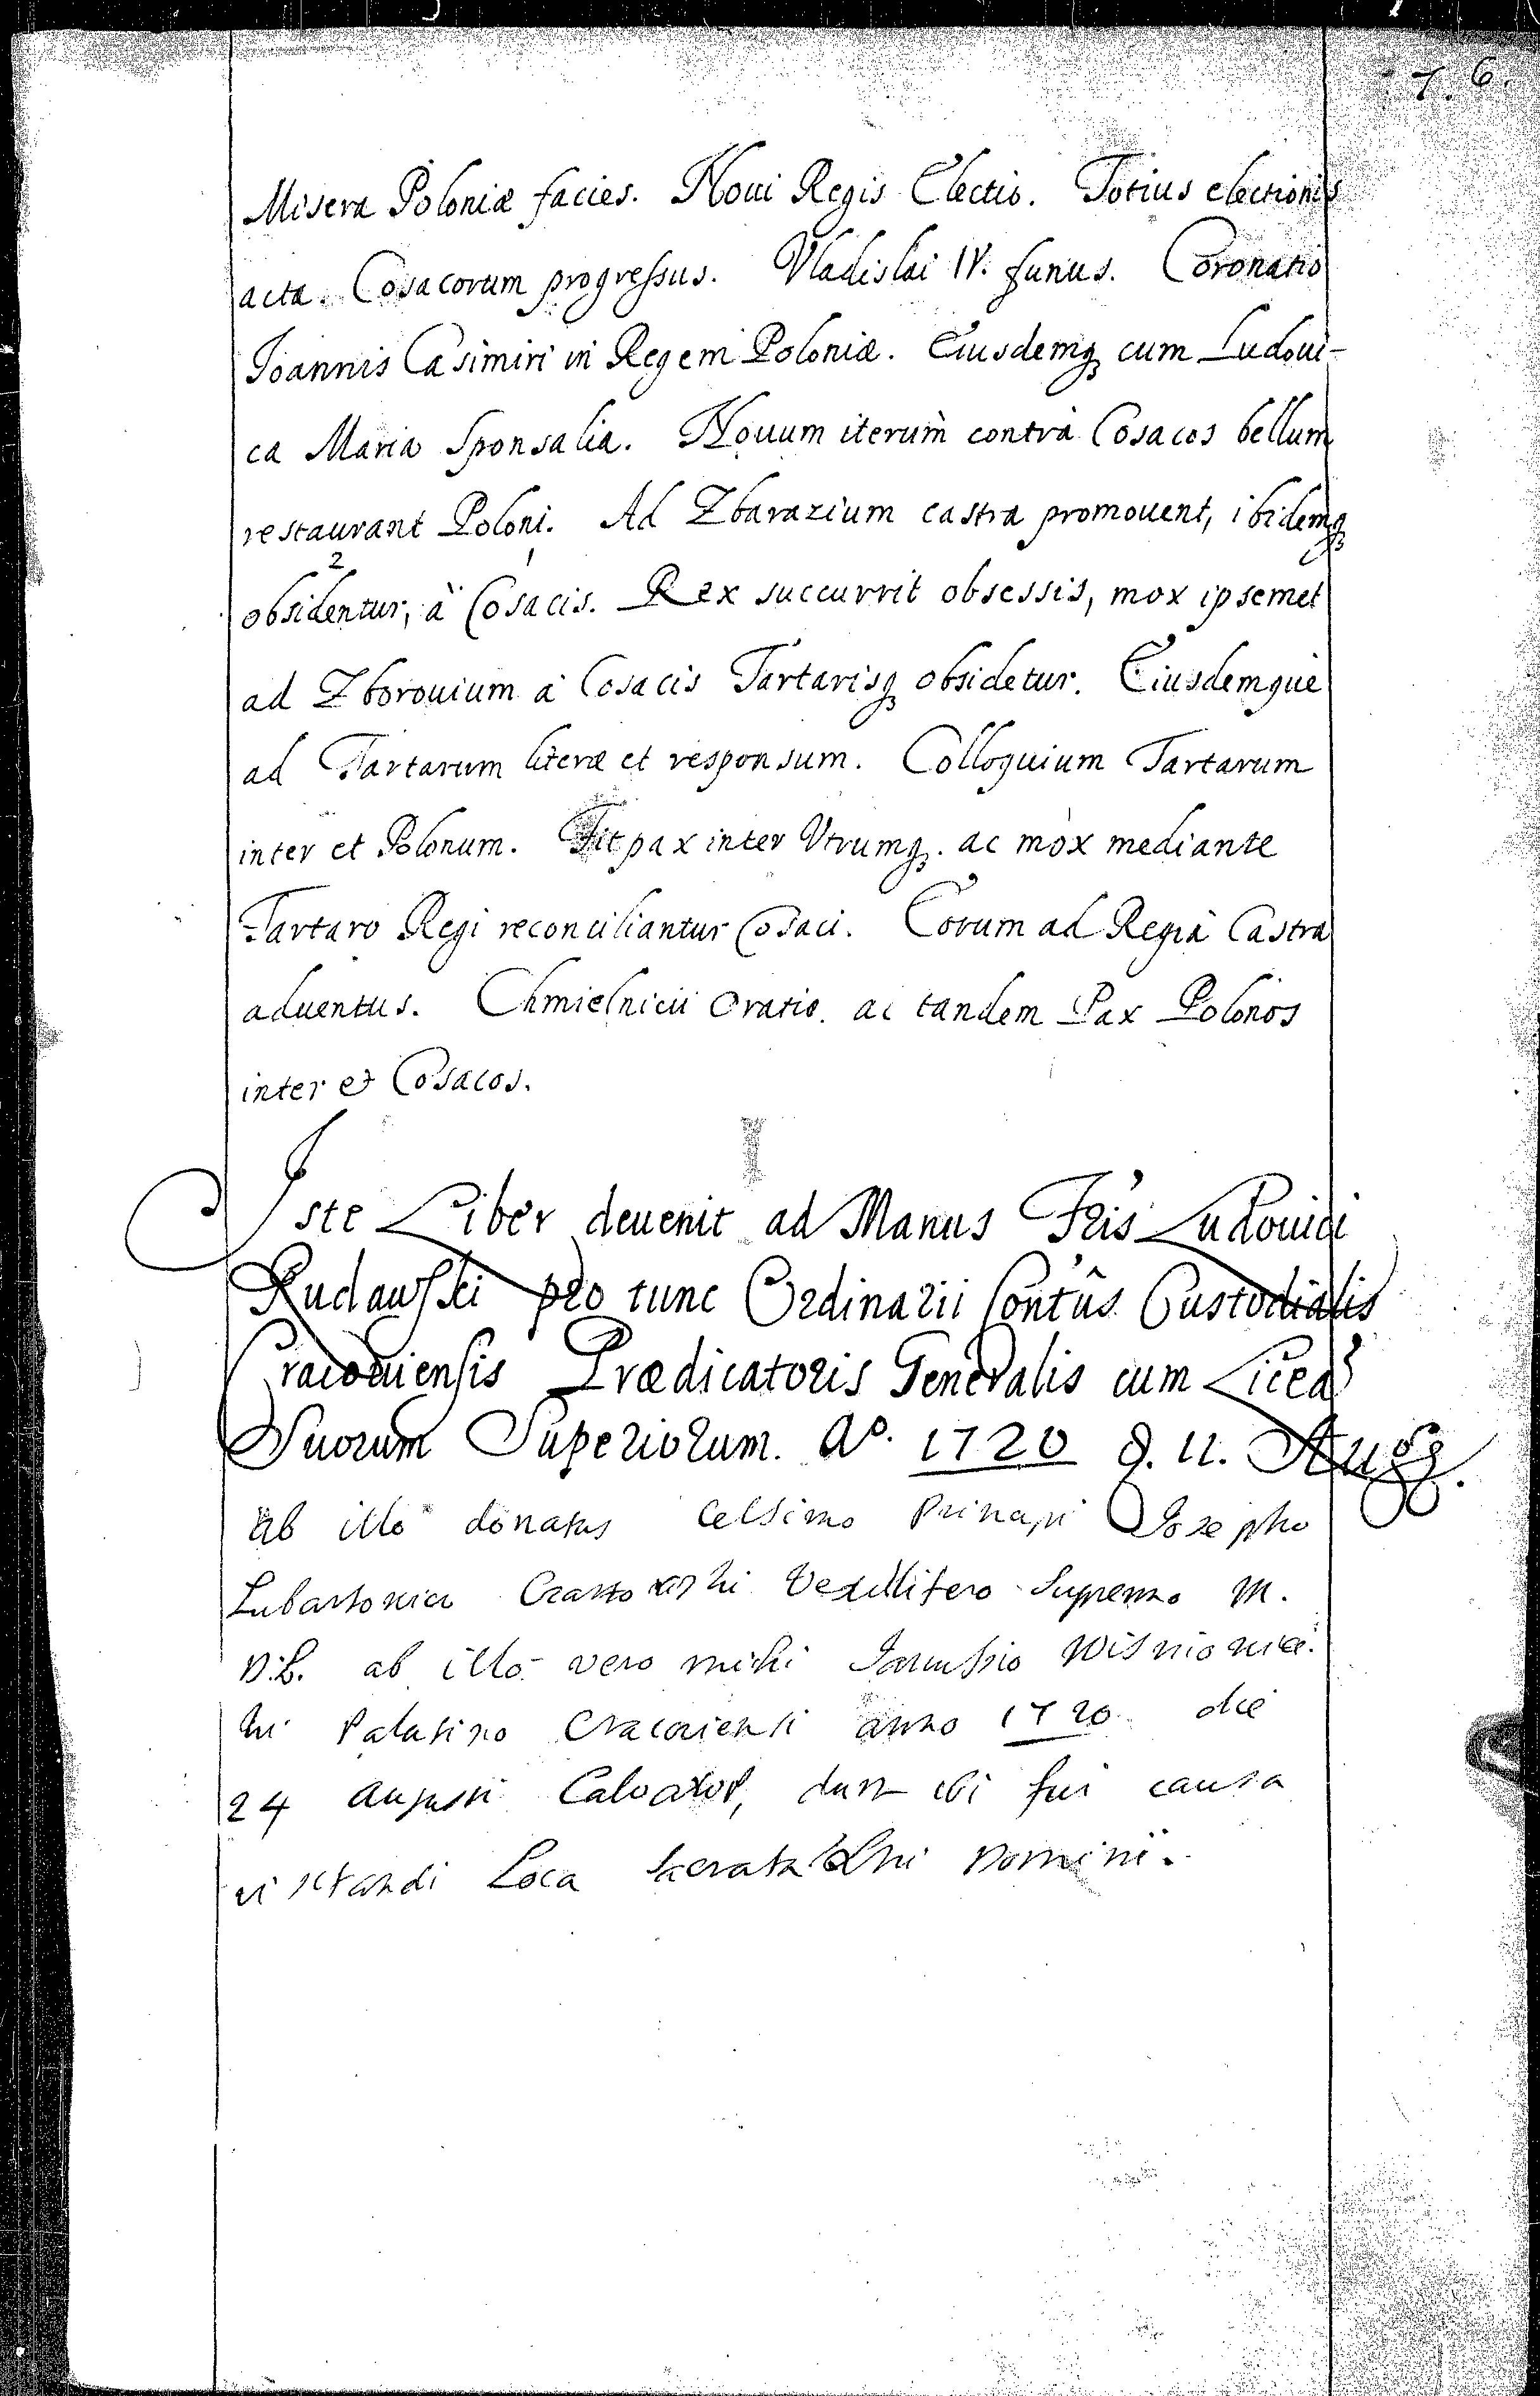 7. 6.
Misera Poloniæ facies. Noui Regis Electio. Totius electionis
acta. Cosacorum progressus. Vladislai IV. funus. Coronatio
Joannis Casimiri in Regem Poloniæ. Eiusdemq cum Ludoui-
ca Maria Sponsalia. Nouum iterum contrà Cosacos bellum
restaurant Poloni. Ad Zbarazium castra promouent, ibidemq
2 1
obsidentur, à Cosacis. Rex succurrit obsessis, mox ipsemet
ad Zborouium à Cosacis Tartarisq obsidetur. Eiusdemque
ad Tartarum literæ et responsum. Colloquium Tartarum
inter et Polonum. Fit pax inter Vtrumq. ac mox mediante
Tartaro Regi reconciliantur Cosaci. Eorum ad Regia Castra
aduentus. Chmielnicii Oratio. ac tandem Pax Polonos
inter et Cosacos.
Iste Liber deuenit ad Manus Fris Ludouici
Rudawski pro tunc Ordinarii Contûs Custodialis
Cracouiensis Prædicatoris Generalis cum Licea
Suorum Superiorum. Ao. 1720 d. 11. Augg.
ab illo donatus Celsimo Principi Josepho
Lubartonicz Vexillifero Supremo M.
D. L. ab illo vero mihi Janussio Wisniowie-
cki Palatino Cracoviensi anno 1720 die
24 Augusti dum ibi fui causa
visitandi Loca Sacrata Domini.